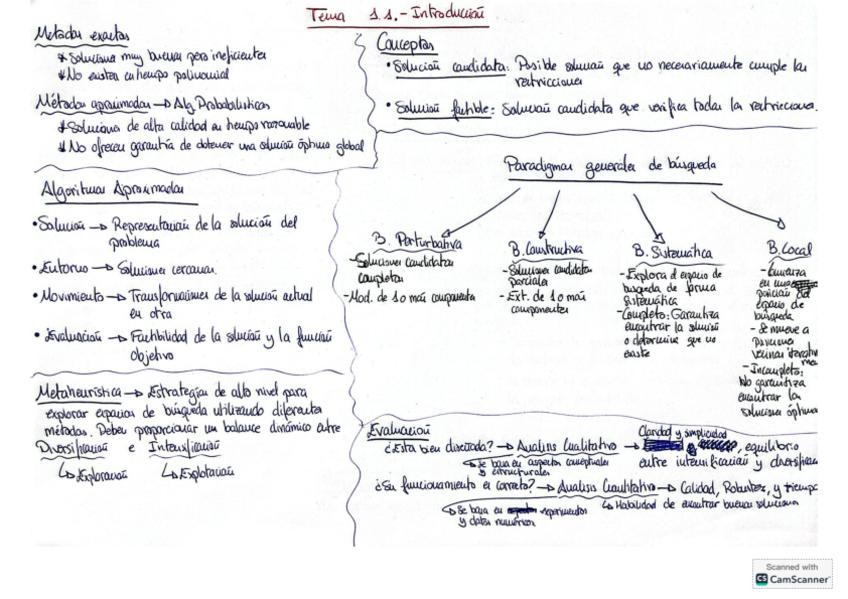 Tema 1.1.- Introducción
Métodos exactos
* Soluciones muy buenas pero ineficientes
* No existen en tiempo polinomial
Métodos aproximados → Alg. Probabilísticos
* Soluciones de alta calidad en tiempo razonable
* No ofrecen garantía de obtener una solución óptima global
Conceptos
• Solución candidata: Posible solución que no necesariamente cumple las
restricciones
• Solución factible: Solución candidata que verifica todas las restricciones.
Algoritmos Aproximados
• Solución → Representación de la solución del
problema
• Entorno → Soluciones cercanas.
• Movimiento → Transformaciones de la solución actual
en otra
• Evaluación → Factibilidad de la solución y la función
objetivo
Paradigmas generales de búsqueda
B. Perturbativa
- Soluciones candidatas
completas
- Mod. de 1 o más componentes
B. Constructiva
- Soluciones candidatas
parciales
- Ext. de 1 o más
componentes
B. Sistemática
- Explora el espacio de
búsqueda de forma
sistemática
- Completo: Garantiza
encontrar la solución
o determina que no
existe
B. Local
- Comienza
en una
posición del
espacio de
búsqueda
- Se mueve a
posiciones
vecinas
- Incompleto:
No garantiza
encontrar las
soluciones óptimas
Metaheurística → Estrategias de alto nivel para
explorar espacios de búsqueda utilizando diferentes
métodos. Deben proporcionar un balance dinámico entre
Diversificación e Intensificación
↳ Exploración ↳ Explotación
Evaluación
¿Esta bien diseñada? → Analisis Cualitativo → Claridad y simplicidad, equilibrio
↳ Se basa en aspectos conceptuales
y estructurales
entre intensificación y diversificación
¿Su funcionamiento es correcto? → Analisis Cuantitativo → Calidad, Robustez, y tiempo
↳ Se basa en experimentos
y datos numéricos
↳ Habilidad de encontrar buenas soluciones
Scanned with
CS CamScanner